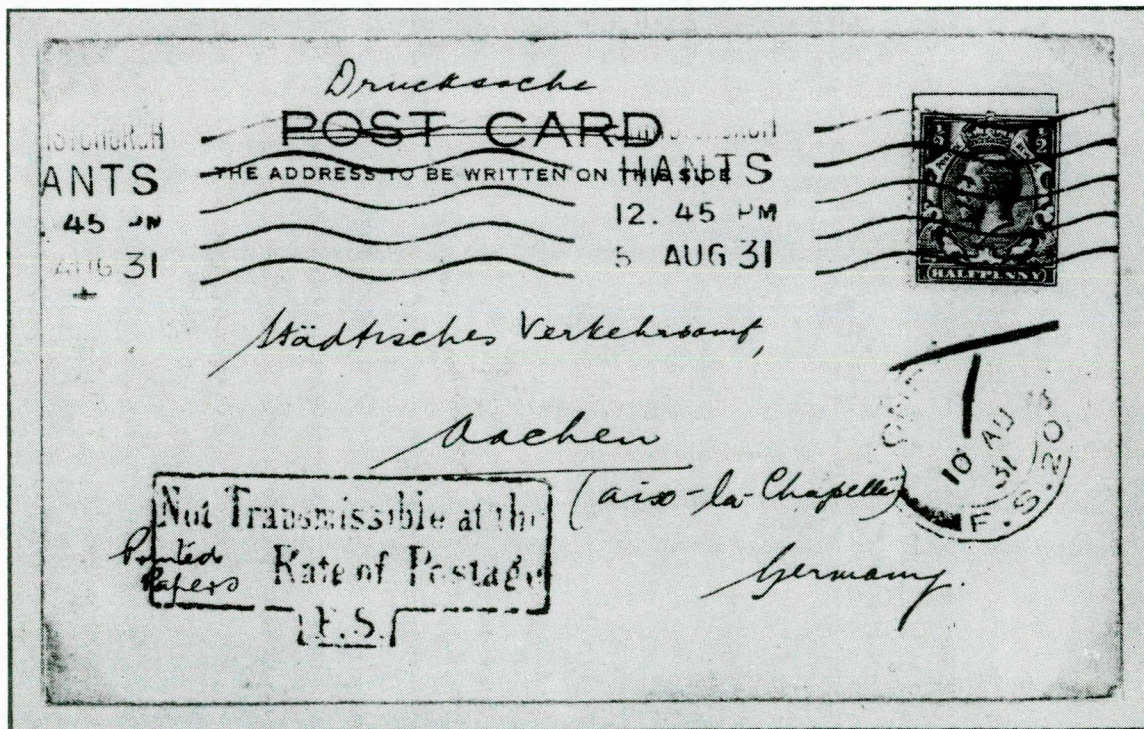 Drucksache
POST CARD
THE ADDRESS TO BE WRITTEN ON THIS SIDE
ANTS
45 PM
AUG 31
HANTS
12. 45 PM
5 AUG 31
½ ½
HALFPENNY
Städtisches Verkehrsamt,
Aachen
(aix-la-Chapelle)
Germany.
T
10 AU
31
F.S. 20
Not Transmissible at the
Printed
Papers
Rate of Postage
F.S.